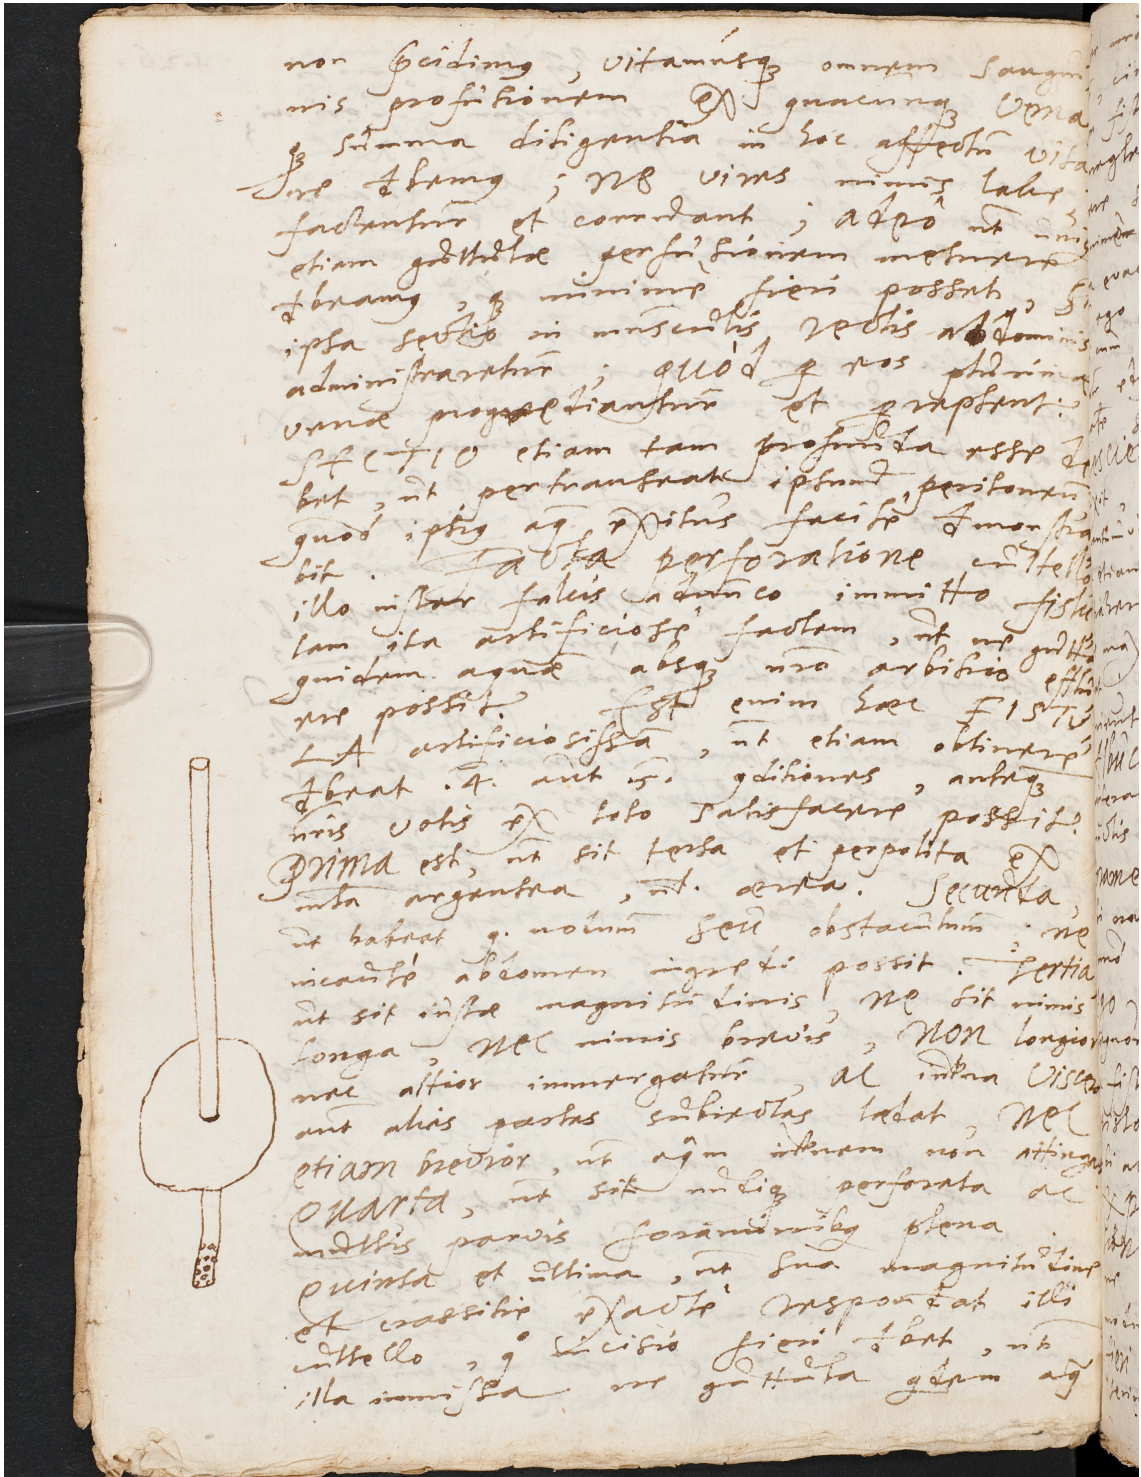 non p̄cidimus, vitamusq; omnem sangui
nis profusionem ex quacunq; vena
q; summa diligentia in hoc affectu vita
re debemus; Ne vires nimis labe
factentur et corruant; adeo ut unius
etiam guttulæ perfusionem metuere
debeamus, q; minime fieri posset, si
ipsa sectio in musculis rectis abdominis
administraretur; quod p eos plurimæ
venæ progrediantur et prepsent.
SECTIO etiam tam profunda esse de
bet, ut pertranseat ipsum peritoneum
quod ipsius aq exitus facile demonstra
bit. Facta perforatione cultello
illo instar falcis adunco immitto fistu
lam ita artificiose factam, ut ne gutta
quidem aquæ absq; nro arbitrio efflu
ere possit. Est enim hæc FISTU
LA artificiosissa, ut etiam obtinere
debeat .4. aut .5. 9ditiones, anteq;
nris votis ex toto satisfacere possit.
Prima est, ut sit tersa et perpolita ex
mta argentea, ut. ærea. Secunda,
ut habeat q. notum seu obstaculum; ne
incaute abdomen ingredi possit. Tertia
ut sit iustæ magnitudinis, Ne sit nimis
longa, Nec nimis brevis, Non longior
nec altior immergatur, ac interna viscera
aut alias partes subiectas lædat, Nec
etiam brevior, ut aqm internam non attingat
Quarta, ut sit undiq; perforata ac
multis parvis foraminibq plena.
Quinta et ultima, ut sua magnitudine
et crassitie exacte respondeat illi
cultello, q° incisio fieri debet, ut
illa immissa ne guttula qdem aq